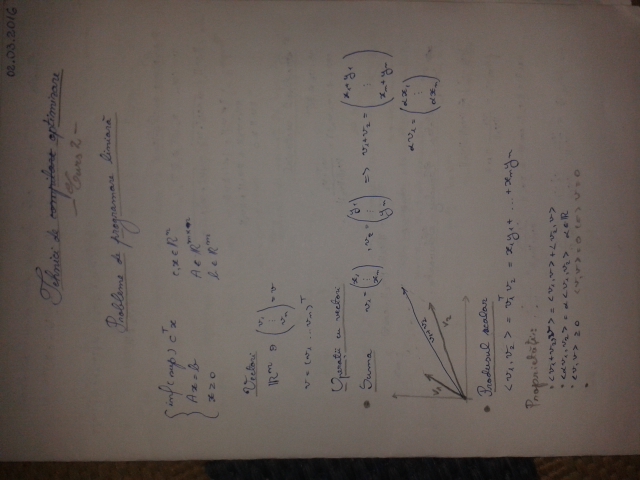 02.03.2016
Tehnici de compilare optimizare
- Curs 2 -
Probleme de programare liniară
inf (sup) cᵀx c, x ∈ ℝⁿ
Ax = b A ∈ ℝᵐˣⁿ
x ≥ 0 b ∈ ℝᵐ
Vectori
ℝⁿ ∋ (v₁ ⋮ vₙ) = v
v = (v₁ ... vₙ)ᵀ
Operații cu vectori
• Suma v₁ = (x₁ ⋮ xₙ) , v₂ = (y₁ ⋮ yₙ) => v₁+v₂ = (x₁+y₁ ⋮ xₙ+yₙ)
αv₁ = (αx₁ ⋮ αxₙ)
v₁ v₁+v₂ v₂
• Produsul scalar
<v₁, v₂> = v₁ᵀ v₂ = x₁y₁ + ... + xₙyₙ
Proprietăți:
• <v₁+v₂, v> = <v₁, v> + <v₂, v>
• <αv₁, v₂> = α<v₁, v₂> α∈ℝ
• <v, v> ≥ 0 <v, v> = 0 (=) v = 0
•